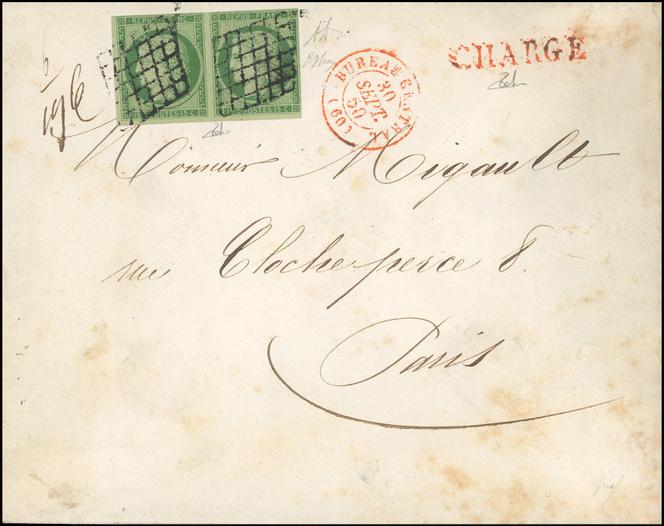 REPUB FRANC REPUB FRANC
15 C POSTES 15 C 15 C POSTES 15 C
CHARGÉ
BUREAU CENTRAL
30
SEPT.
50
(60)
Monsieur Migault
rue Cloche perce 8.
Paris